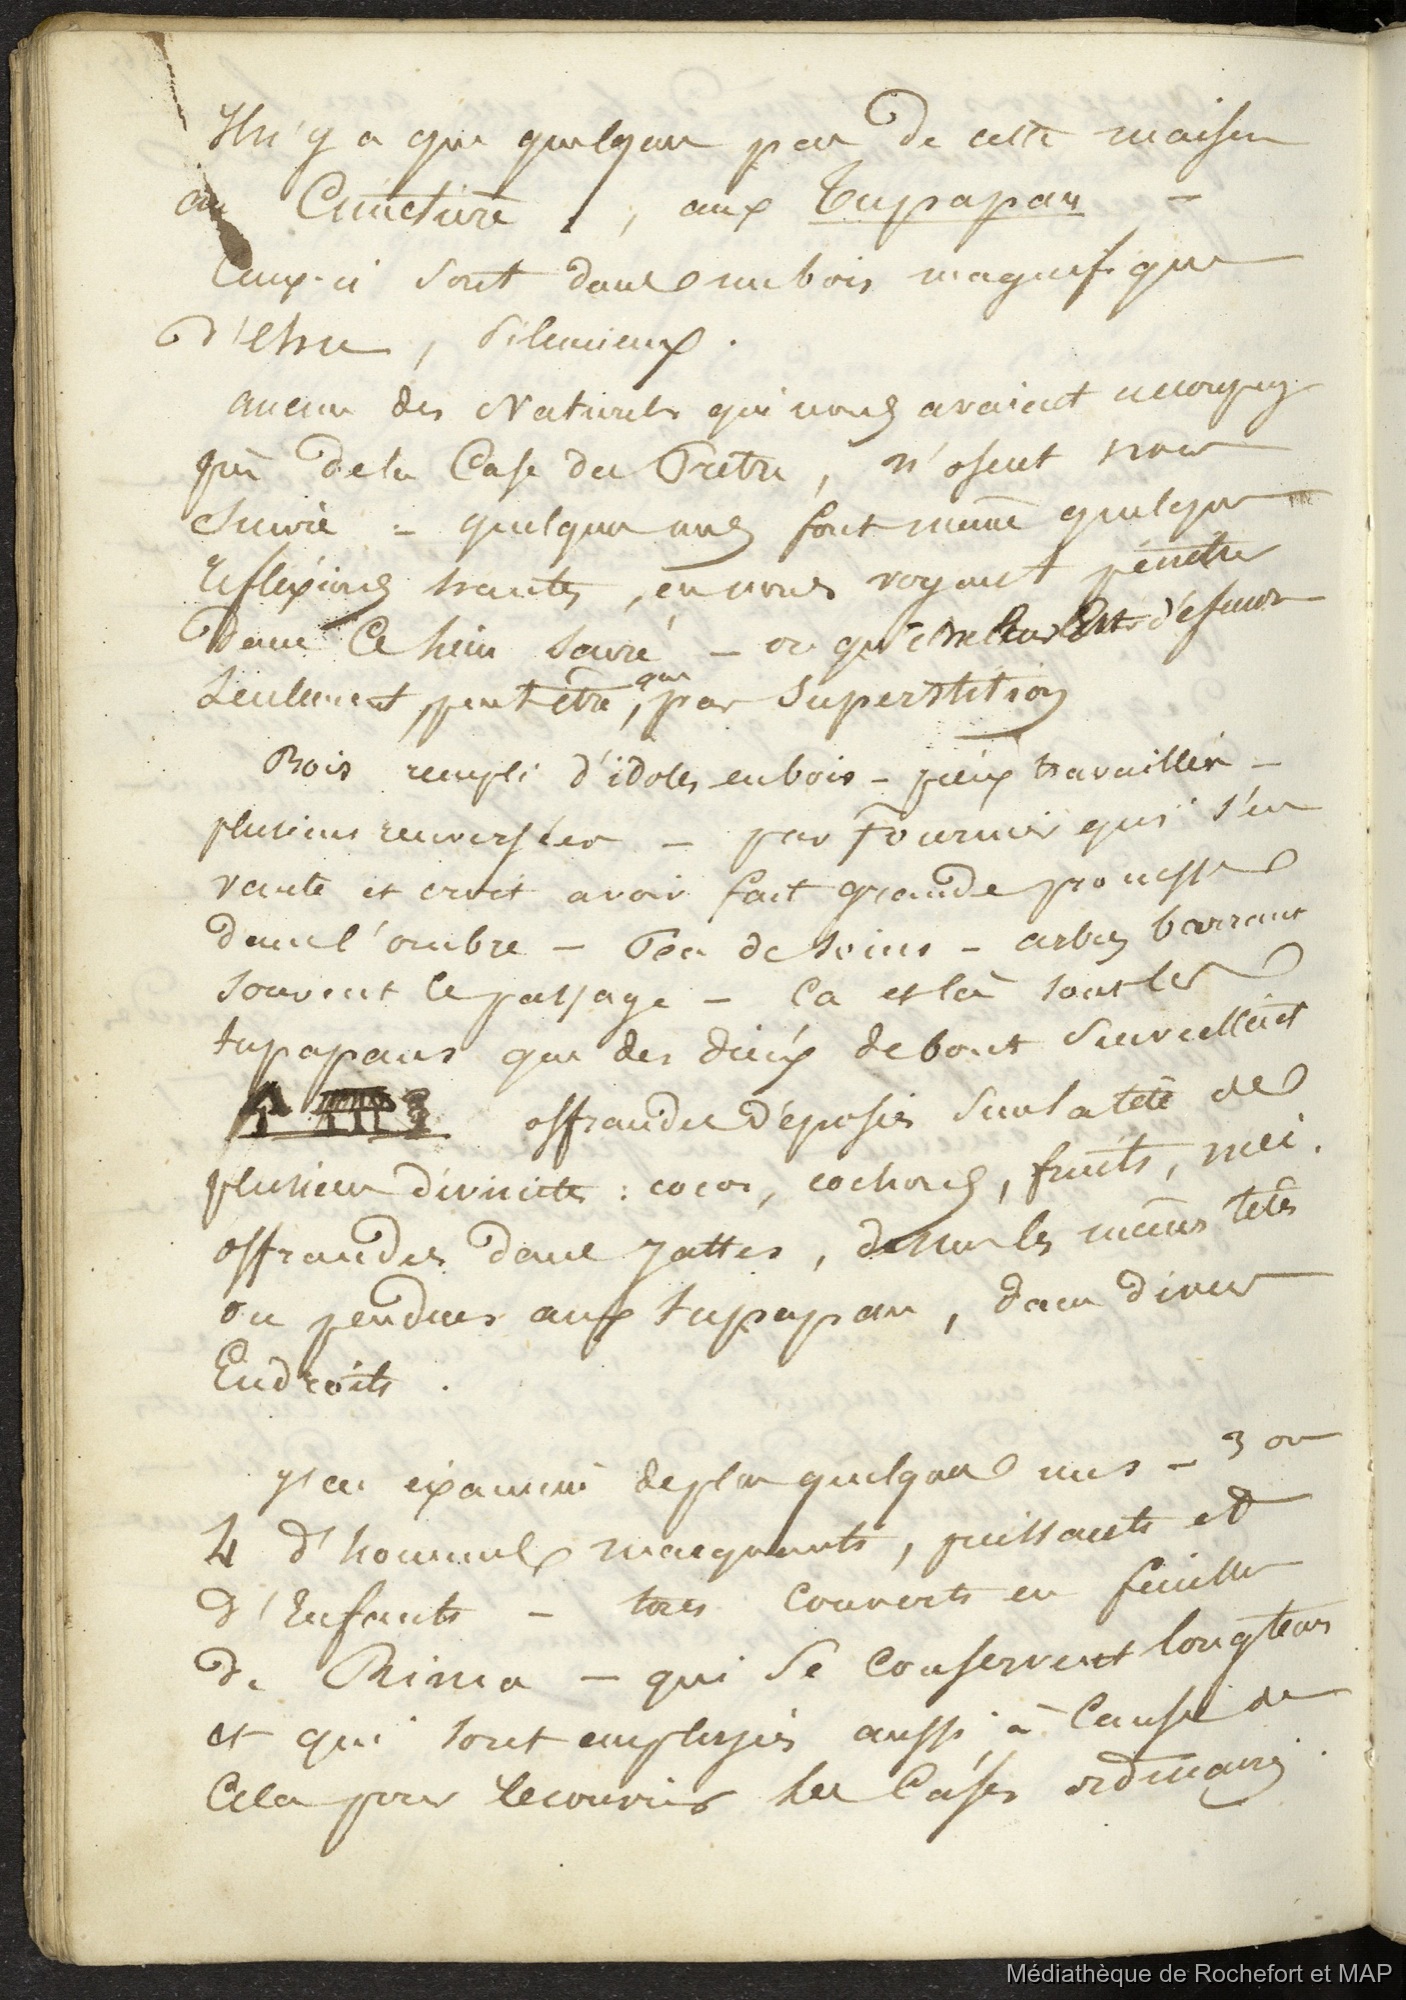 Il n'y a que quelques pas de cette maison
au Cimetière, aux Tupapau -
Ceux-ci sont dans un bois magnifique
d', silencieux.
aucun des Naturels qui nous avaient accompagn
de la Case du Prêtre, n'osent nous
suivre - quelques uns font même quelques
réflexions hautes, en nous voyant pénétrer
dans ce lieu sacré - ou qu'il ne leur est défendu
seulement peut être, que par superstition
Bois rempli d'idoles en bois - peu travaillés -
plusieurs renversées - par Fournier qui s'en
vante et croit avoir fait grande prouesse
dans l'ombre - Peu de soins - arbres barrant
souvent le passage - Ca et là sont les
tupapaus que des dieux debout surveillent
offrandes déposées sur la tête de
plusieurs divinités : cocos, cochons, fruits, mei.
offrandes dans jattes, dessus les mêmes têtes
ou pendues aux tupapau, dans divers
Endroits.
J'ai éxaminé de plus quelques uns - 3 ou
4 d'hommes marquants, puissants et
d'Enfants - tous couverts en feuilles
de Rima - qui se conservent longtems
et qui sont employées aussi à cause de
Cela pour recouvrir les Cases ordinaires
Médiathèque de Rochefort et MAP